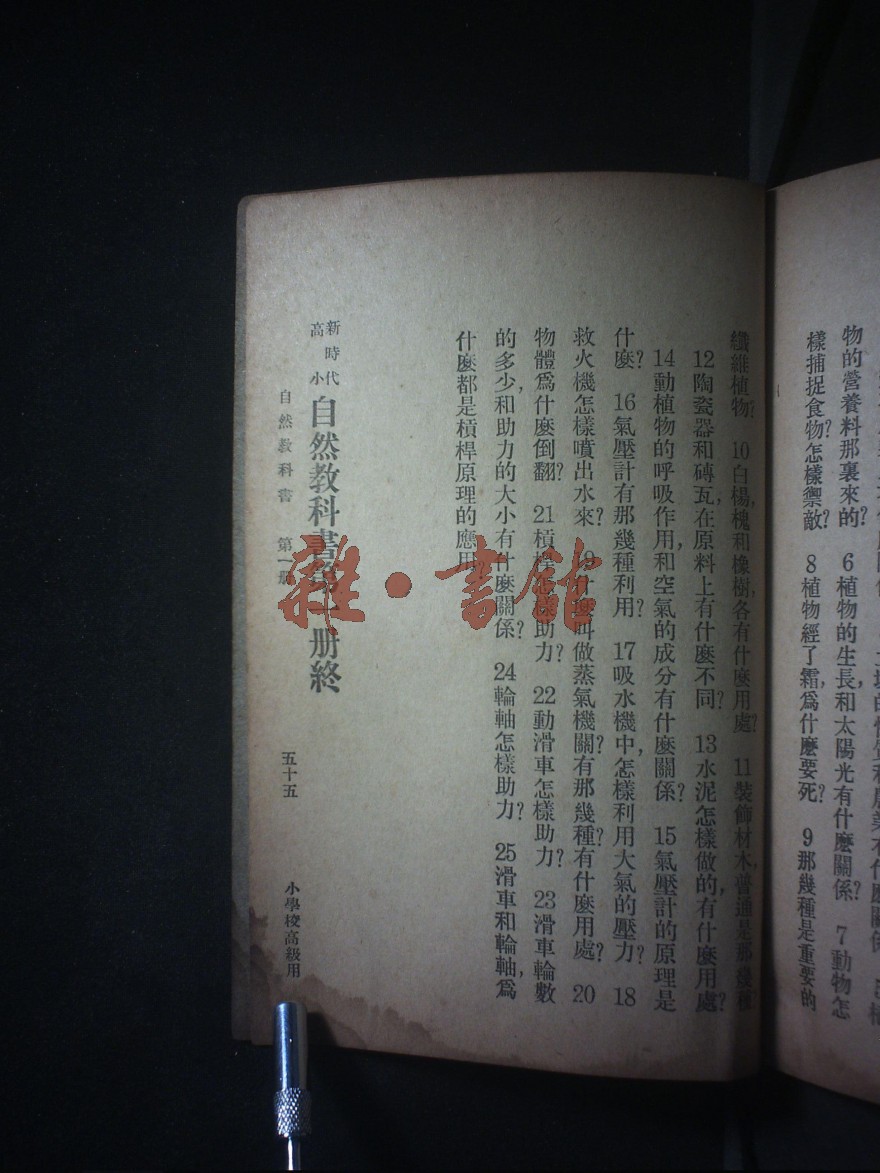 物的營養料那裏來的? 6植物的生長,和太陽光有什麽關係? 7動物怎
樣捕捉食物?怎樣禦敵? 8植物經了霜,爲什麽要死? 9那幾種是重要的
纖維植物? 10白楊,槐和橡樹,各有什麽用處? 11裝飾材木,普通是那幾種
12陶瓷器和磚瓦,在原料上有什麽不同? 13水泥怎樣做的,有什麽用處?
14動植物的呼吸作用,和空氣的成分有什麽關係? 15氣壓計的原理是
什麽? 16氣壓計有那幾種利用? 17吸水機中,怎樣利用大氣的壓力? 18
救火機怎樣噴出水來? 19什麽叫做蒸氣機關?有那幾種?有什麽用處? 20
物體爲什麽倒翻? 21槓桿怎樣助力? 22動滑車怎樣助力? 23滑車輪數
的多少,和助力的大小有什麽關係? 24輪軸怎樣助力? 25滑車和輪軸,爲
什麽都是槓桿原理的應用
新時代
高小
自然教科書第一册終
自然教科書 第一册 五十五 小學校高級用
雜·書館